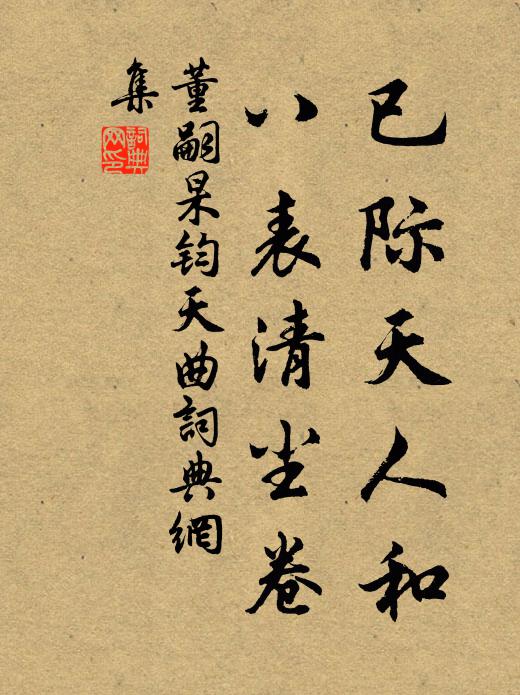 已际天人和
八表清尘卷
董嗣杲钧天曲詞典網
集
詞典
网印